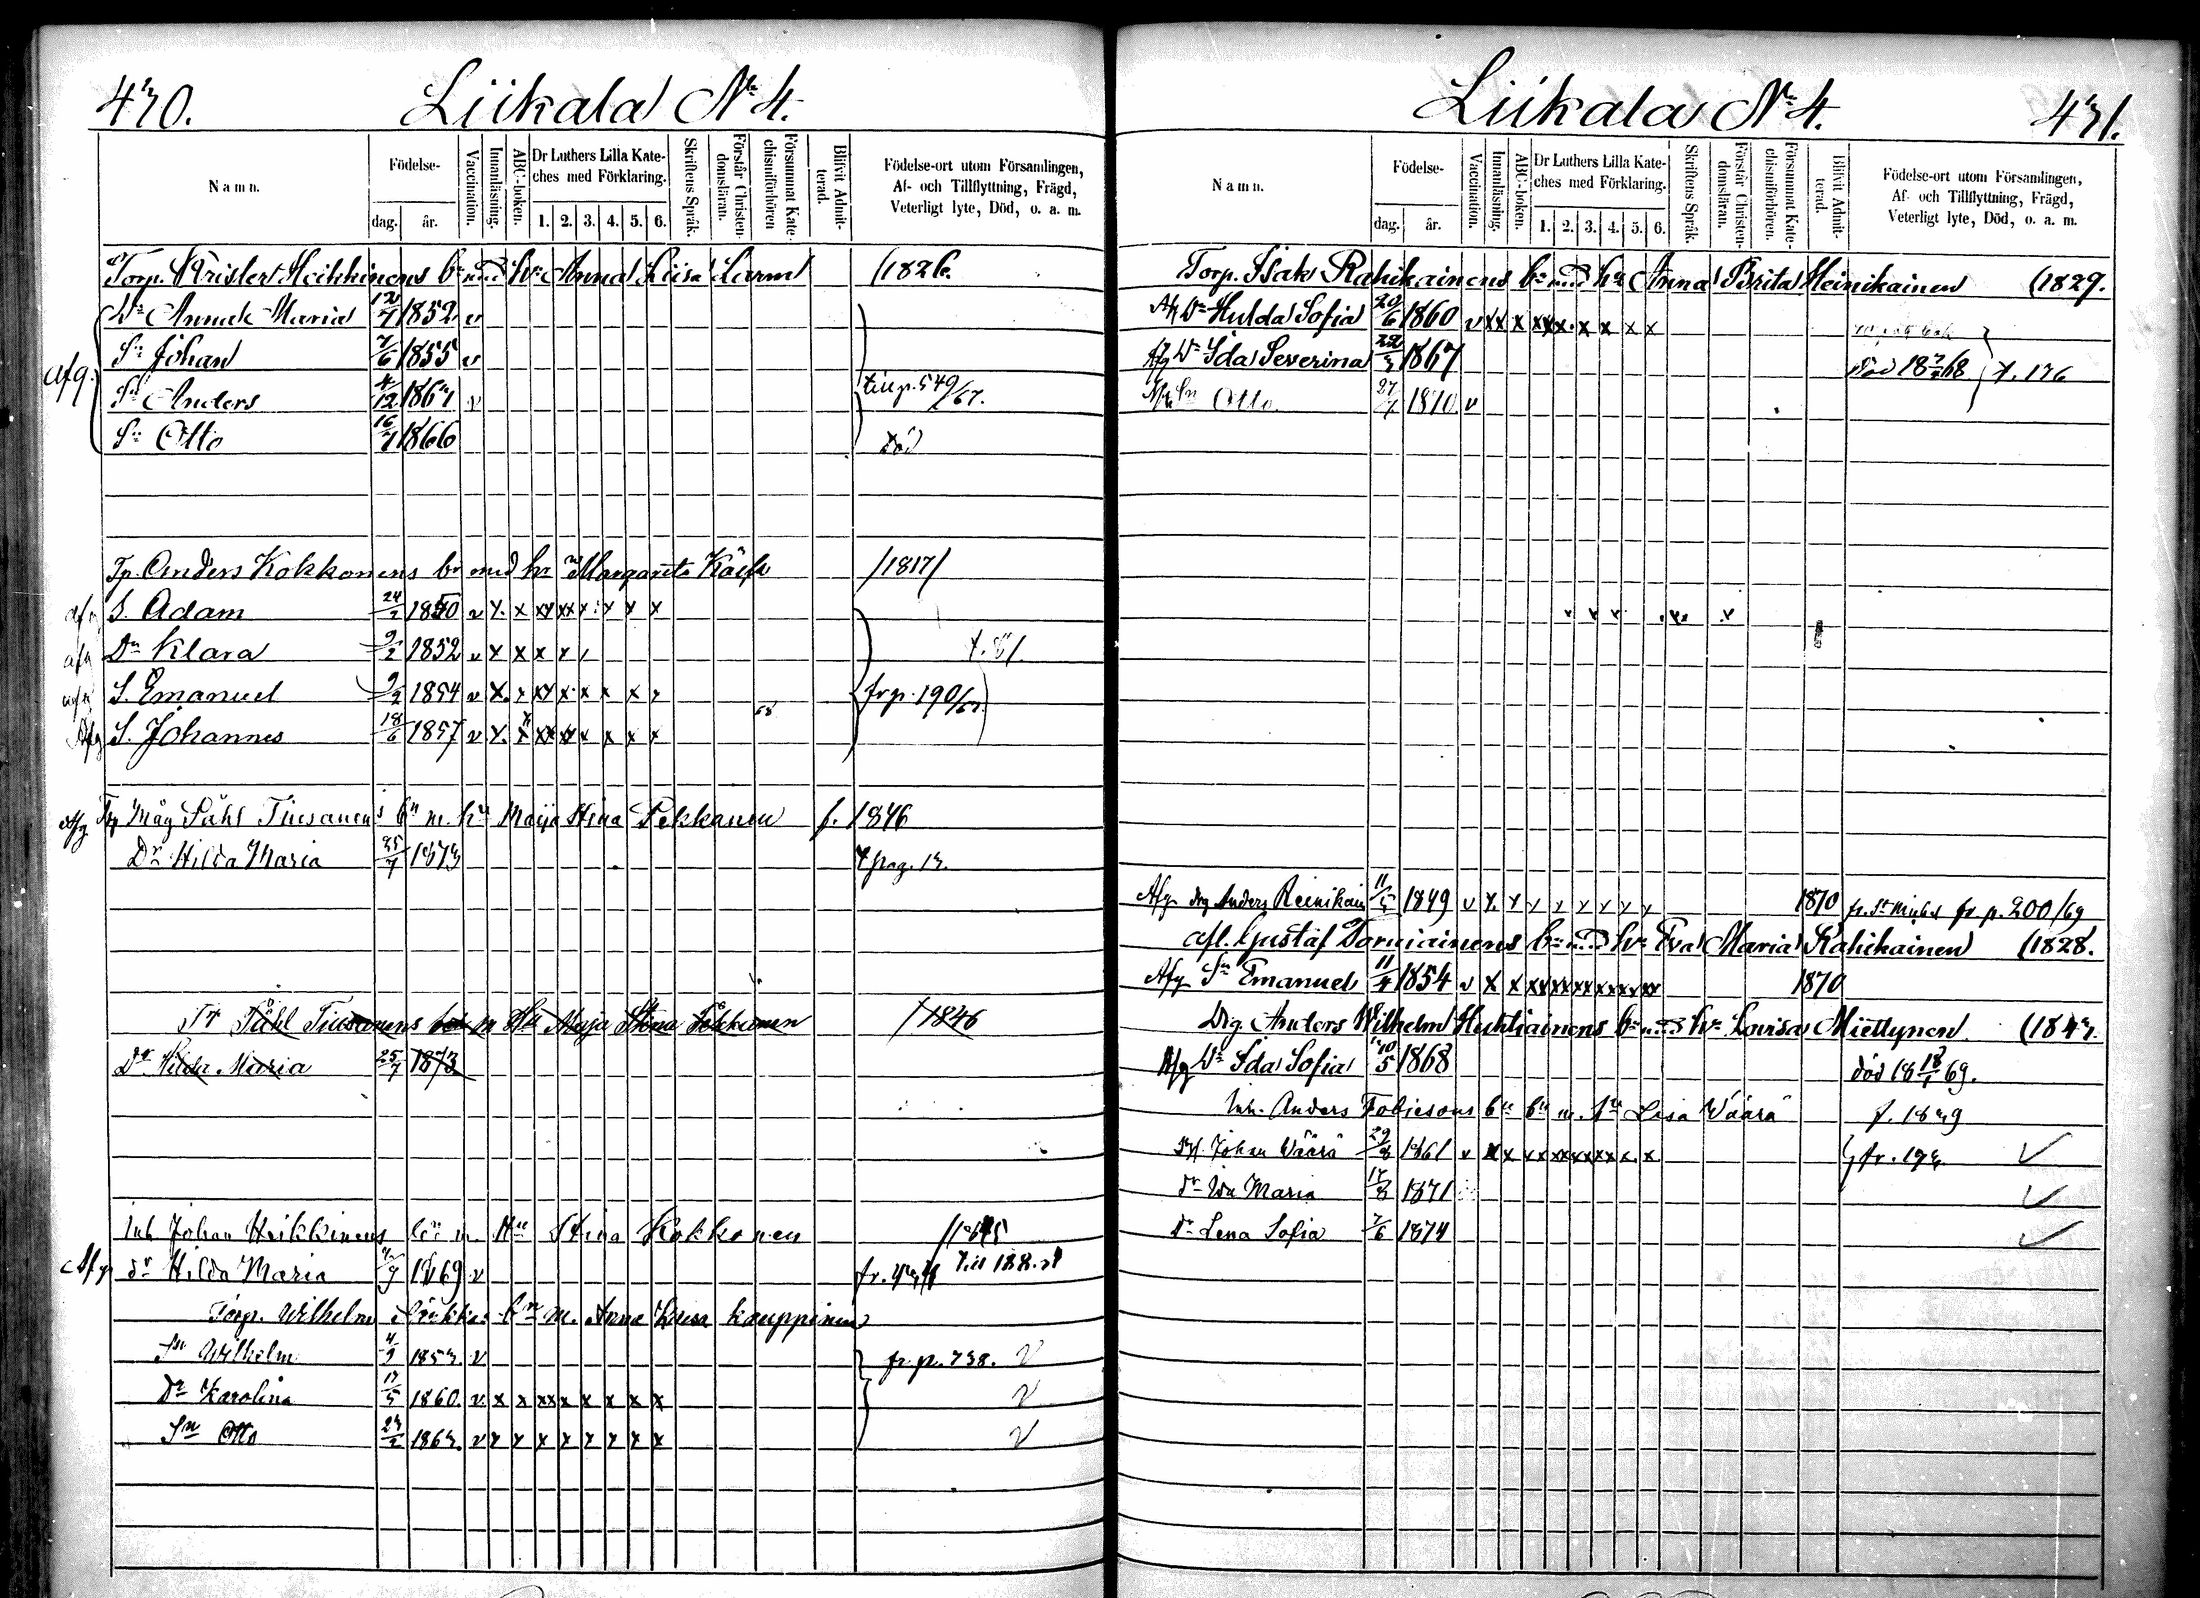 470. Liikala No 4.
Namn.
Födelse-
dag. år.
Vaccination.
Innanläsning.
ABC-boken.
Dr Luthers Lilla Kate-
ches med Förklaring.
1. 2. 3. 4. 5. 6.
Skriftens Språk.
Förstår Christen-
domsläran.
Försummat Kate-
chismiförhören
Blifvit Admit-
terad.
Födelse-ort utom Församlingen,
Af- och Tillflyttning, Frägd,
Veterligt lyte, Död, o. a. m.
Torp. Krister Heikkinens bn med hu Anna Liisa Larm (1826.
afg. Dr Annak Maria 12/7 1852 v
Sn Johan 7/6 1855 v
Sn Anders 4/12 1861 v till p. 549/67.
Sn Otto 16/7 1866 död
Tp. Anders Kokkonens bn med hu Margareta /1817/
afg S. Adam 24/2 1850 v x x xx xx x x x x
afg Dr Klara 9/2 1852 v x x x x t. 81.
afg S. Emanuel 9/2 1854 v x x xx x x x x x fr p. 190/
Afg S. Johannes 18/6 1857 v x x xx xx x x x x
Afg Tp Måg Påhl Tiusanens bn m. hu Maija Stina Pekkanen f. 1846
Dr Hilda Maria 25/7 1873 t pag. 13.
Tp Påhl Tiusanens m Hu Maja Stina Pekkanen /1846
Dr Hilda Maria 25/7 1873
Inh Johan Heikkinens m. Hu Stina Kokkonen
Afg dr Hilda Maria 1869 v fr. till 188.
Torp. Wilhelm bn m. Anna Luisa Kauppinen
Sn Wilhelm 4/9 1853. v fr. p. 738. v
Dr Karolina 17/5 1860. v x x xx x x x x x v
Sn Otto 23/2 1863. v x x x x x x x x v
Liikala No 4. 471.
Namn.
Födelse-
dag. år.
Vaccination.
Innanläsning.
ABC-boken.
Dr Luthers Lilla Kate-
ches med Förklaring.
1. 2. 3. 4. 5. 6.
Skriftens Språk.
Förstår Christen-
domsläran.
Försummat Kate-
chismiförhören.
Blifvit Admit-
terad.
Födelse-ort utom Församlingen,
Af- och Tillflyttning, Frägd,
Veterligt lyte, Död, o. a. m.
Torp. Isak Rahikainens bn med hu Anna Brita Heinikainen (1829.
Afg Dr Hulda Sofia 20/6 1860 v xx x xxx x x x x
Afg Dr Ida Severina 22/3 1867 död 68 t. 176
Afg Sn Otto 27/7 1870 v
Afg drg Anders Reinikain 11/5 1849 v x x x x x x x x 1870 fr. St Michel fr p. 200/69
afl. Gustaf Tarniainens bn med hu Eva Maria Rahikainen (1828.
Afg Sn Emanuel 11/4 1854 v x x xx xx xx xx xx xx 1870
Drg. Anders Wilhelm Huhtiainens bn med hu Lovisa Miettynen (1843.
Afg Dr Ida Sofia 10/5 1868 död 18 18/1 69.
Inh. Anders Tobiesons bn bn m. hu Lisa Wäärä f. 1839
Johan Wäärä 29/8 1861 v x x xx xx xx xx x x fr. 193. v
dr Ida Maria 17/8 1871 v
dr Lena Sofia 7/6 1874 v